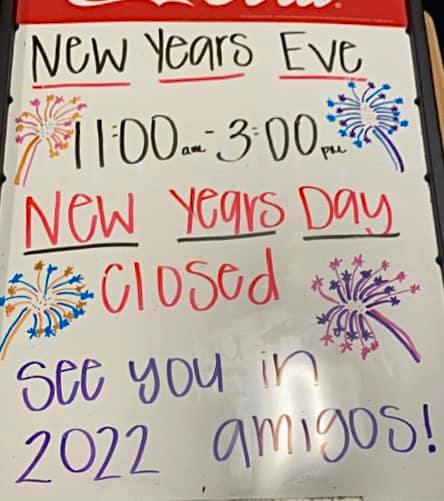 New Years Eve
11:00am - 3:00pm
New Years Day
Closed
See you in
2022 amigos!